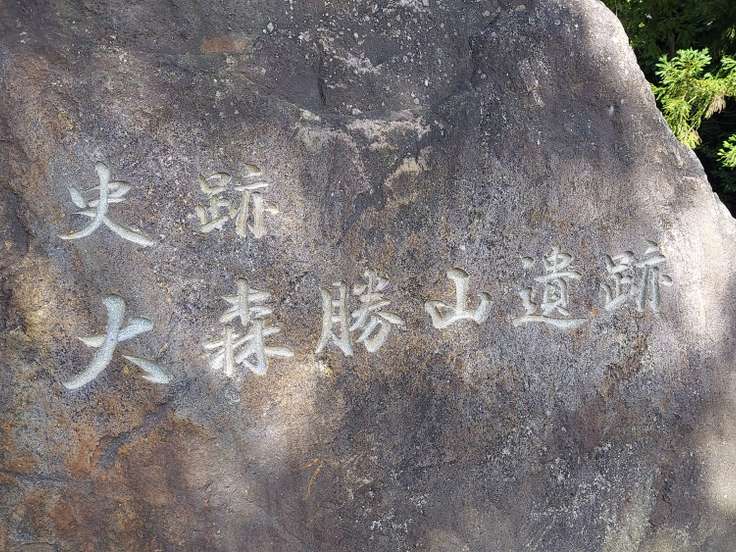 史跡
大森勝山遺跡